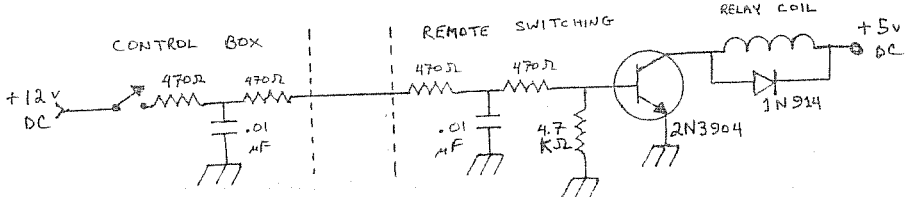 CONTROL BOX
REMOTE SWITCHING
RELAY COIL
+12v
DC
470Ω
470Ω
.01
μF
470Ω
470Ω
.01
μF
4.7
KΩ
2N3904
1N914
+5v
DC